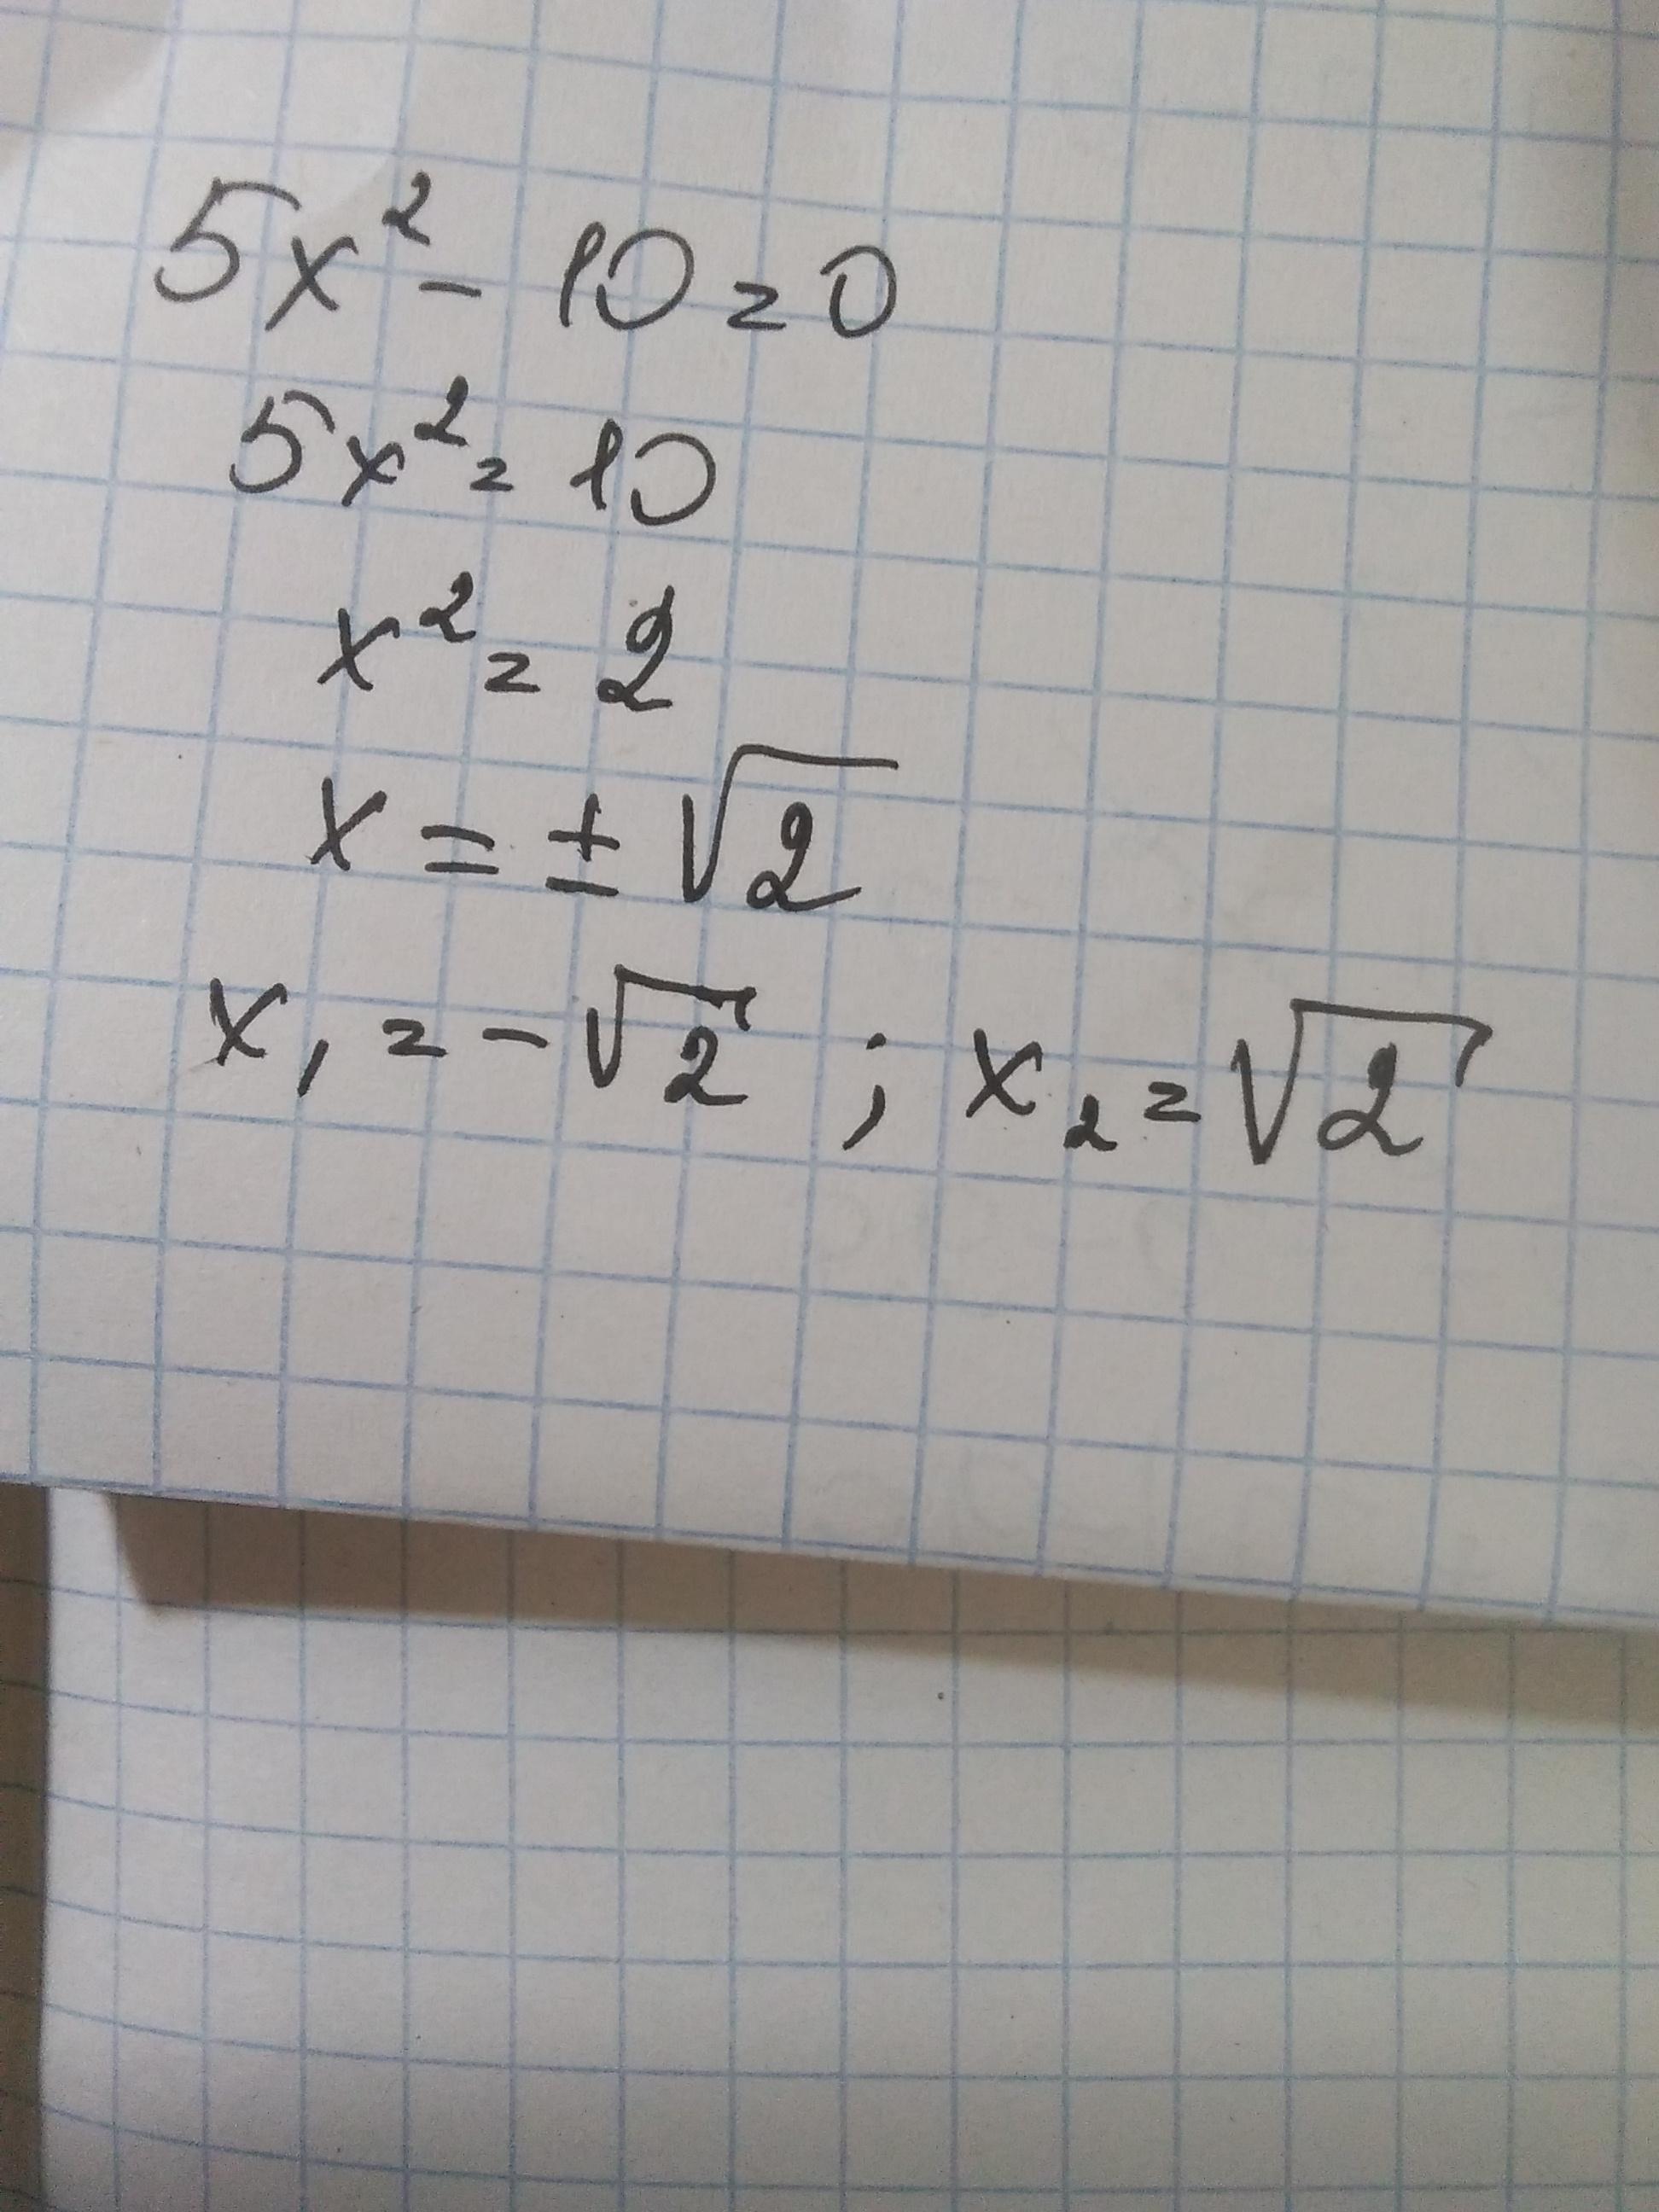 5x² - 10 = 0
5x² = 10
x² = 2
x = ± √2
x₁ = - √2 ; x₂ = √2